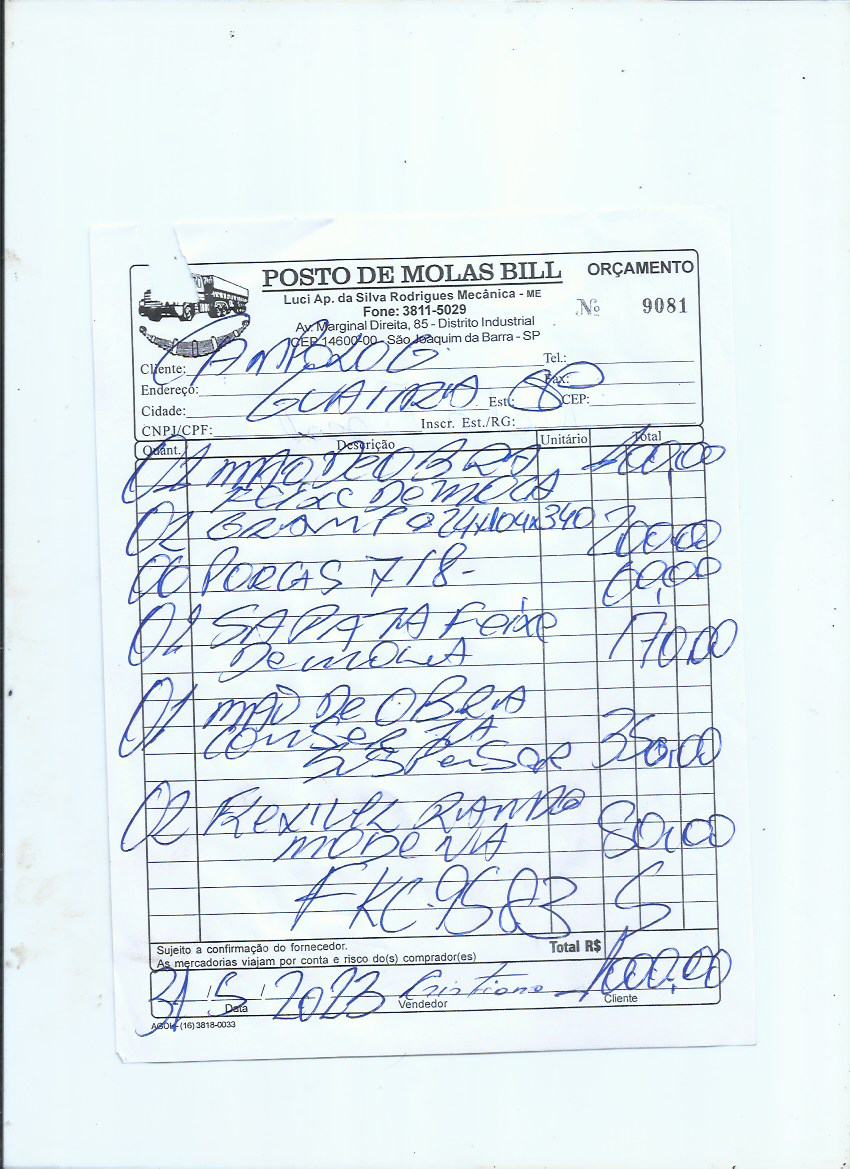 POSTO DE MOLAS BILL ORÇAMENTO
Luci Ap. da Silva Rodrigues Mecânica - ME
Fone: 3811-5029 Nº 9081
Av. Marginal Direita, 85 - Distrito Industrial
CEP 14600-00 - São Joaquim da Barra - SP
Cliente: CAMPOLOG Tel.:
Endereço: Fax:
Cidade: GUAIRA Est.: CEP:
CNPJ/CPF: Inscr. Est./RG:
Quant. Descrição Unitário Total
01 MÃO DE OBRA
FEIXE DE MOLA
02 GRAMPO 24x104x340 200,00
06 PORCAS 7/8- 60,00
02 SAPATA FeixE 170,00
De MOLA
01 MÃO De OBRA
SUSPENSOR 350,00
02 80,00
FKC-9583
Sujeito a confirmação do fornecedor.
As mercadorias viajam por conta e risco do(s) comprador(es) Total R$
31/5/2023 Cristiano 1000,00
Data Vendedor Cliente
(16) 3818-0033